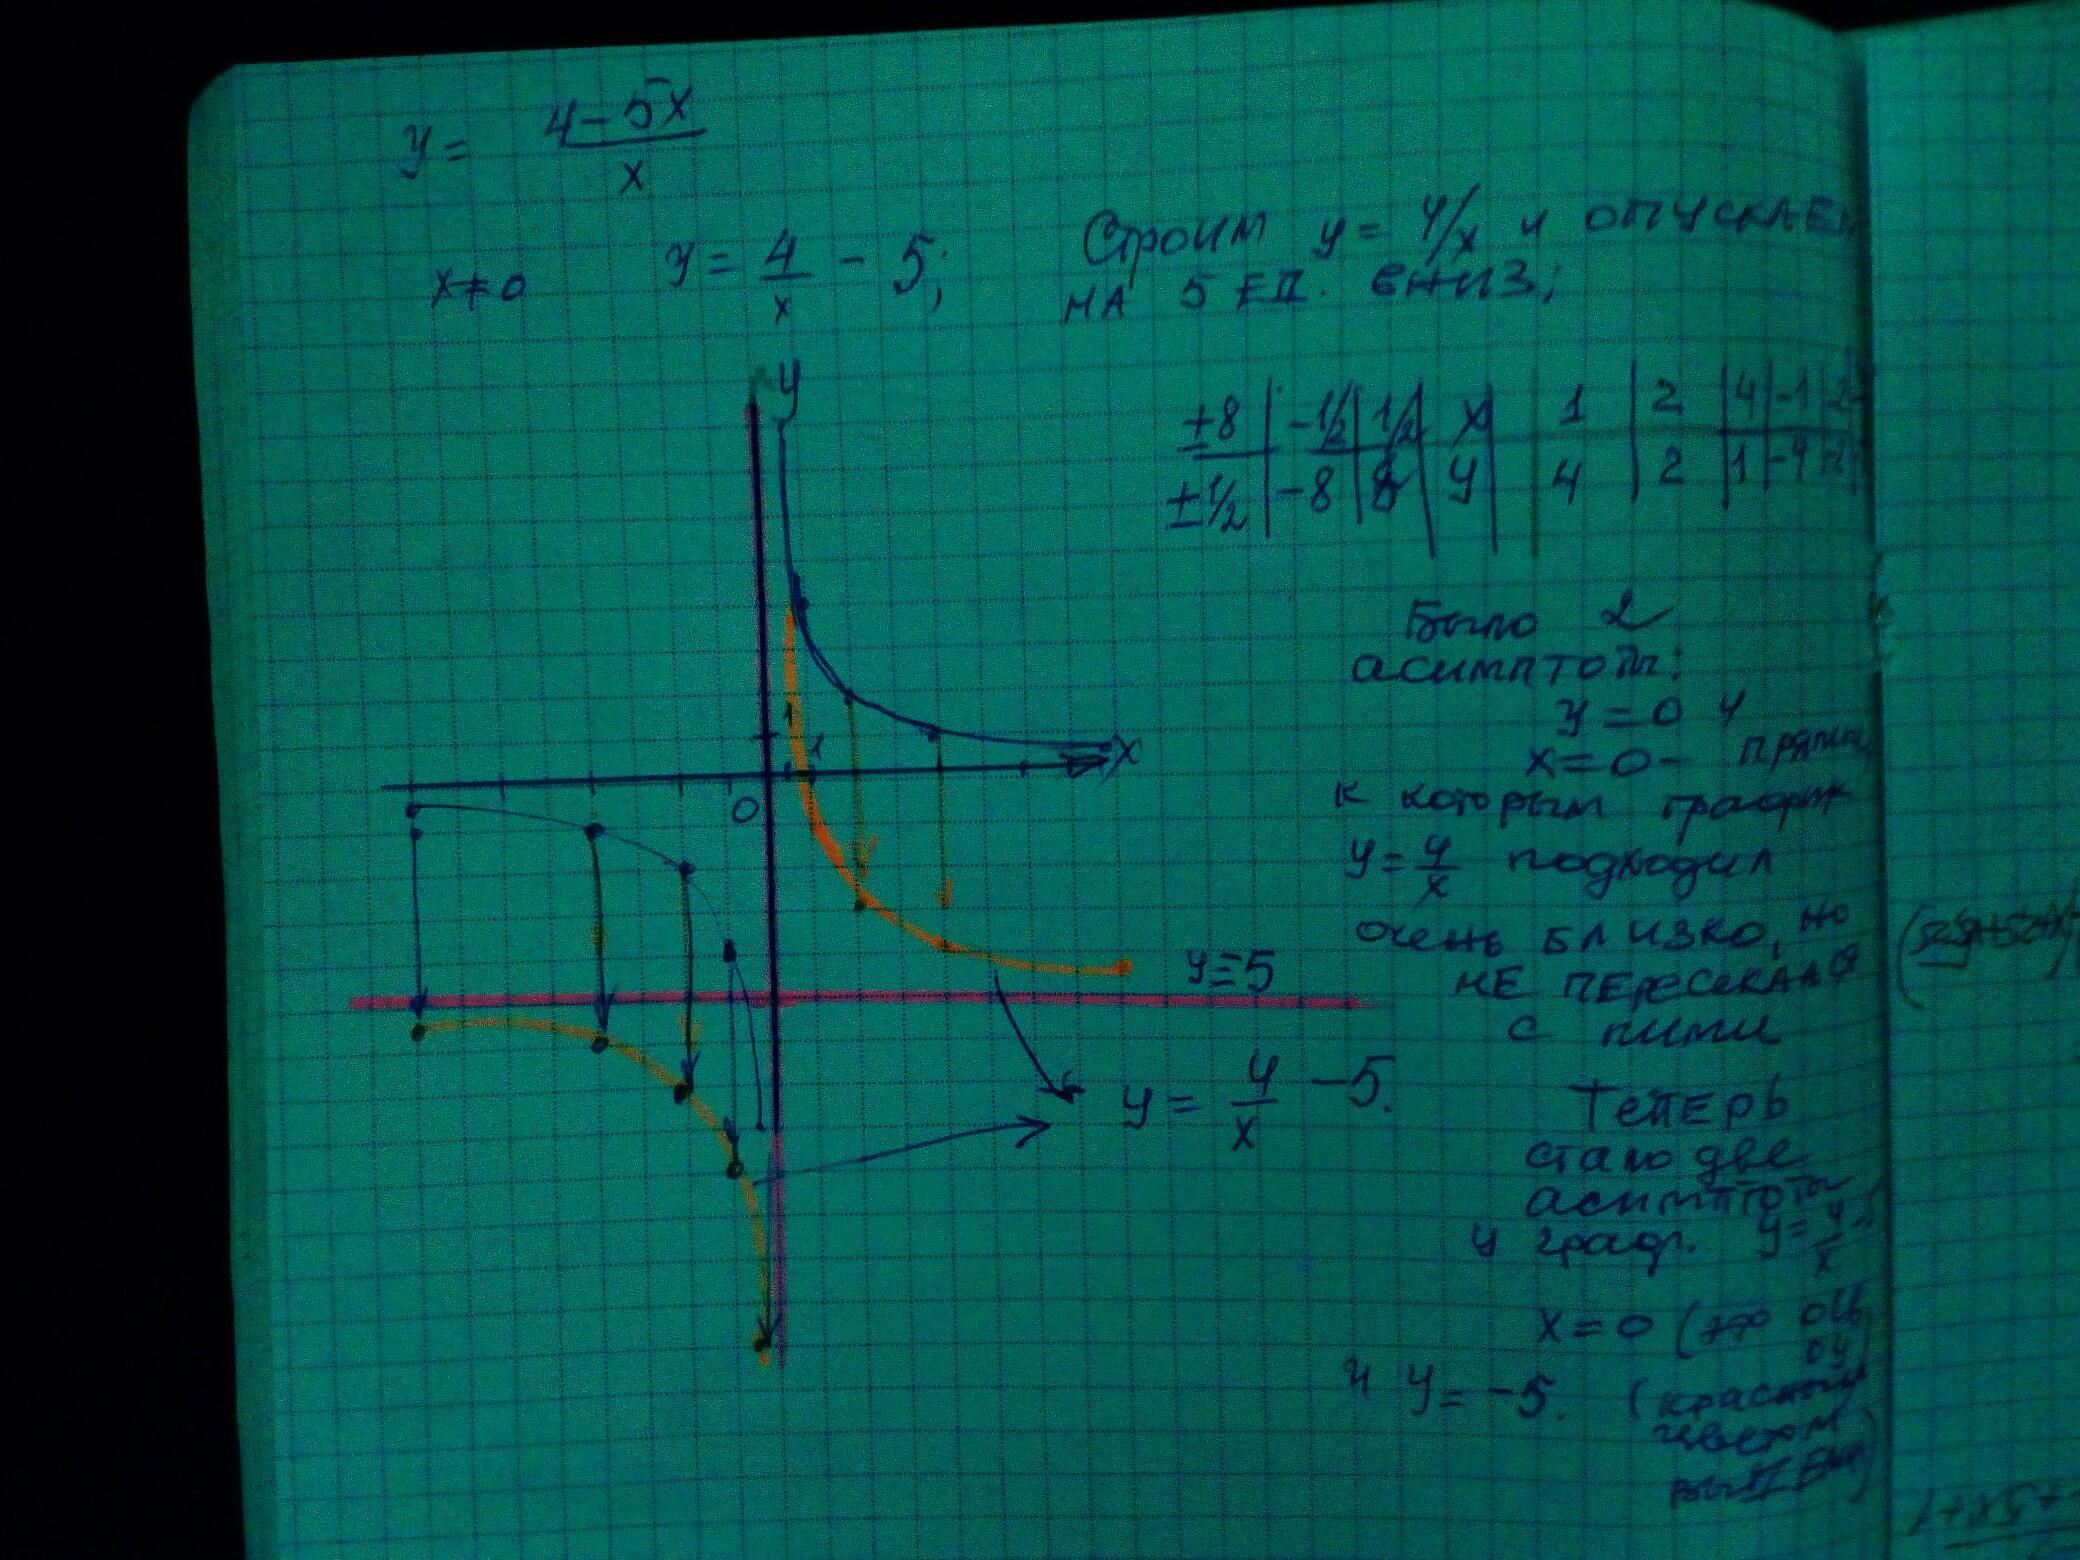 y = 4-5x / x
x≠0 y = 4/x - 5;
Строим y = 4/x и опускаем
на 5 ед. вниз;
±8 | -1/2 | 1/2 | x | 1 | 2 | 4 | -1 | -2
±1/2 | -8 | 8 | y | 4 | 2 | 1 | -4 | -2
y
1
1
x
0
y=5
y = 4/x -5.
Было 2
асимптоты:
y = 0 и
x = 0 - прямые,
к которым график
y = 4/x подходил
очень близко, но
не пересекался
с ними
Теперь
стало две
асимптоты
у граф. y = 4/x
x = 0 (это ось
оу)
и y = -5. (красным
цветом